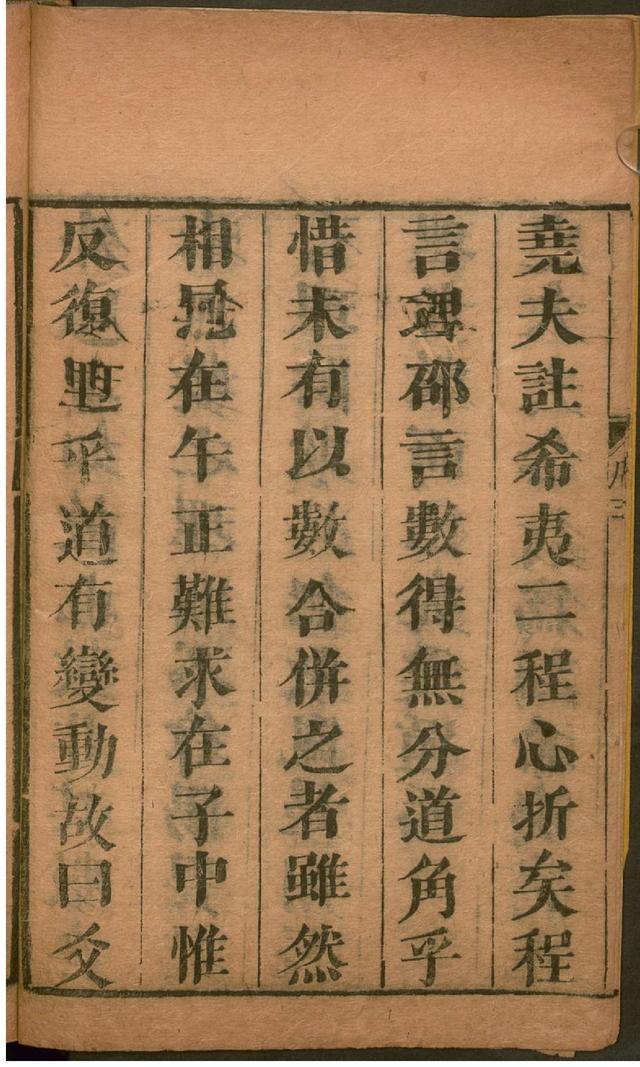 堯夫註希夷二程心折矣程
言邵言數得無分道角乎
惜未有以數合併之者雖然
相在午正難求在子中惟
反復乎道有變動故曰爻